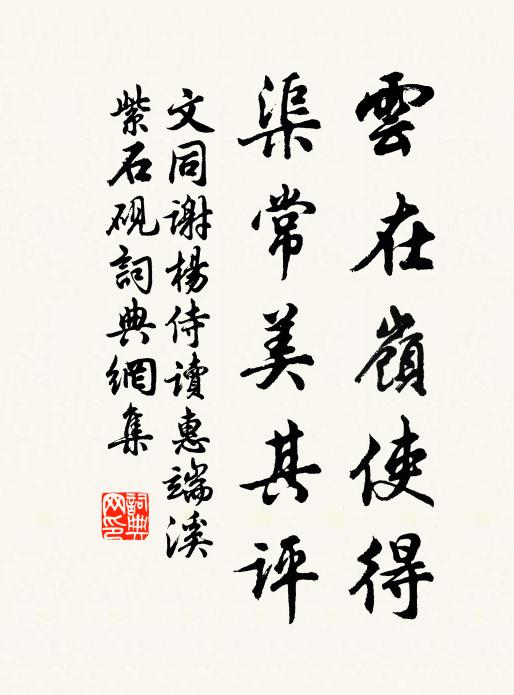 雲在嶺使得
渠常美其評
文同謝楊侍讀惠端溪
紫石硯詞典網集
詞典
网印